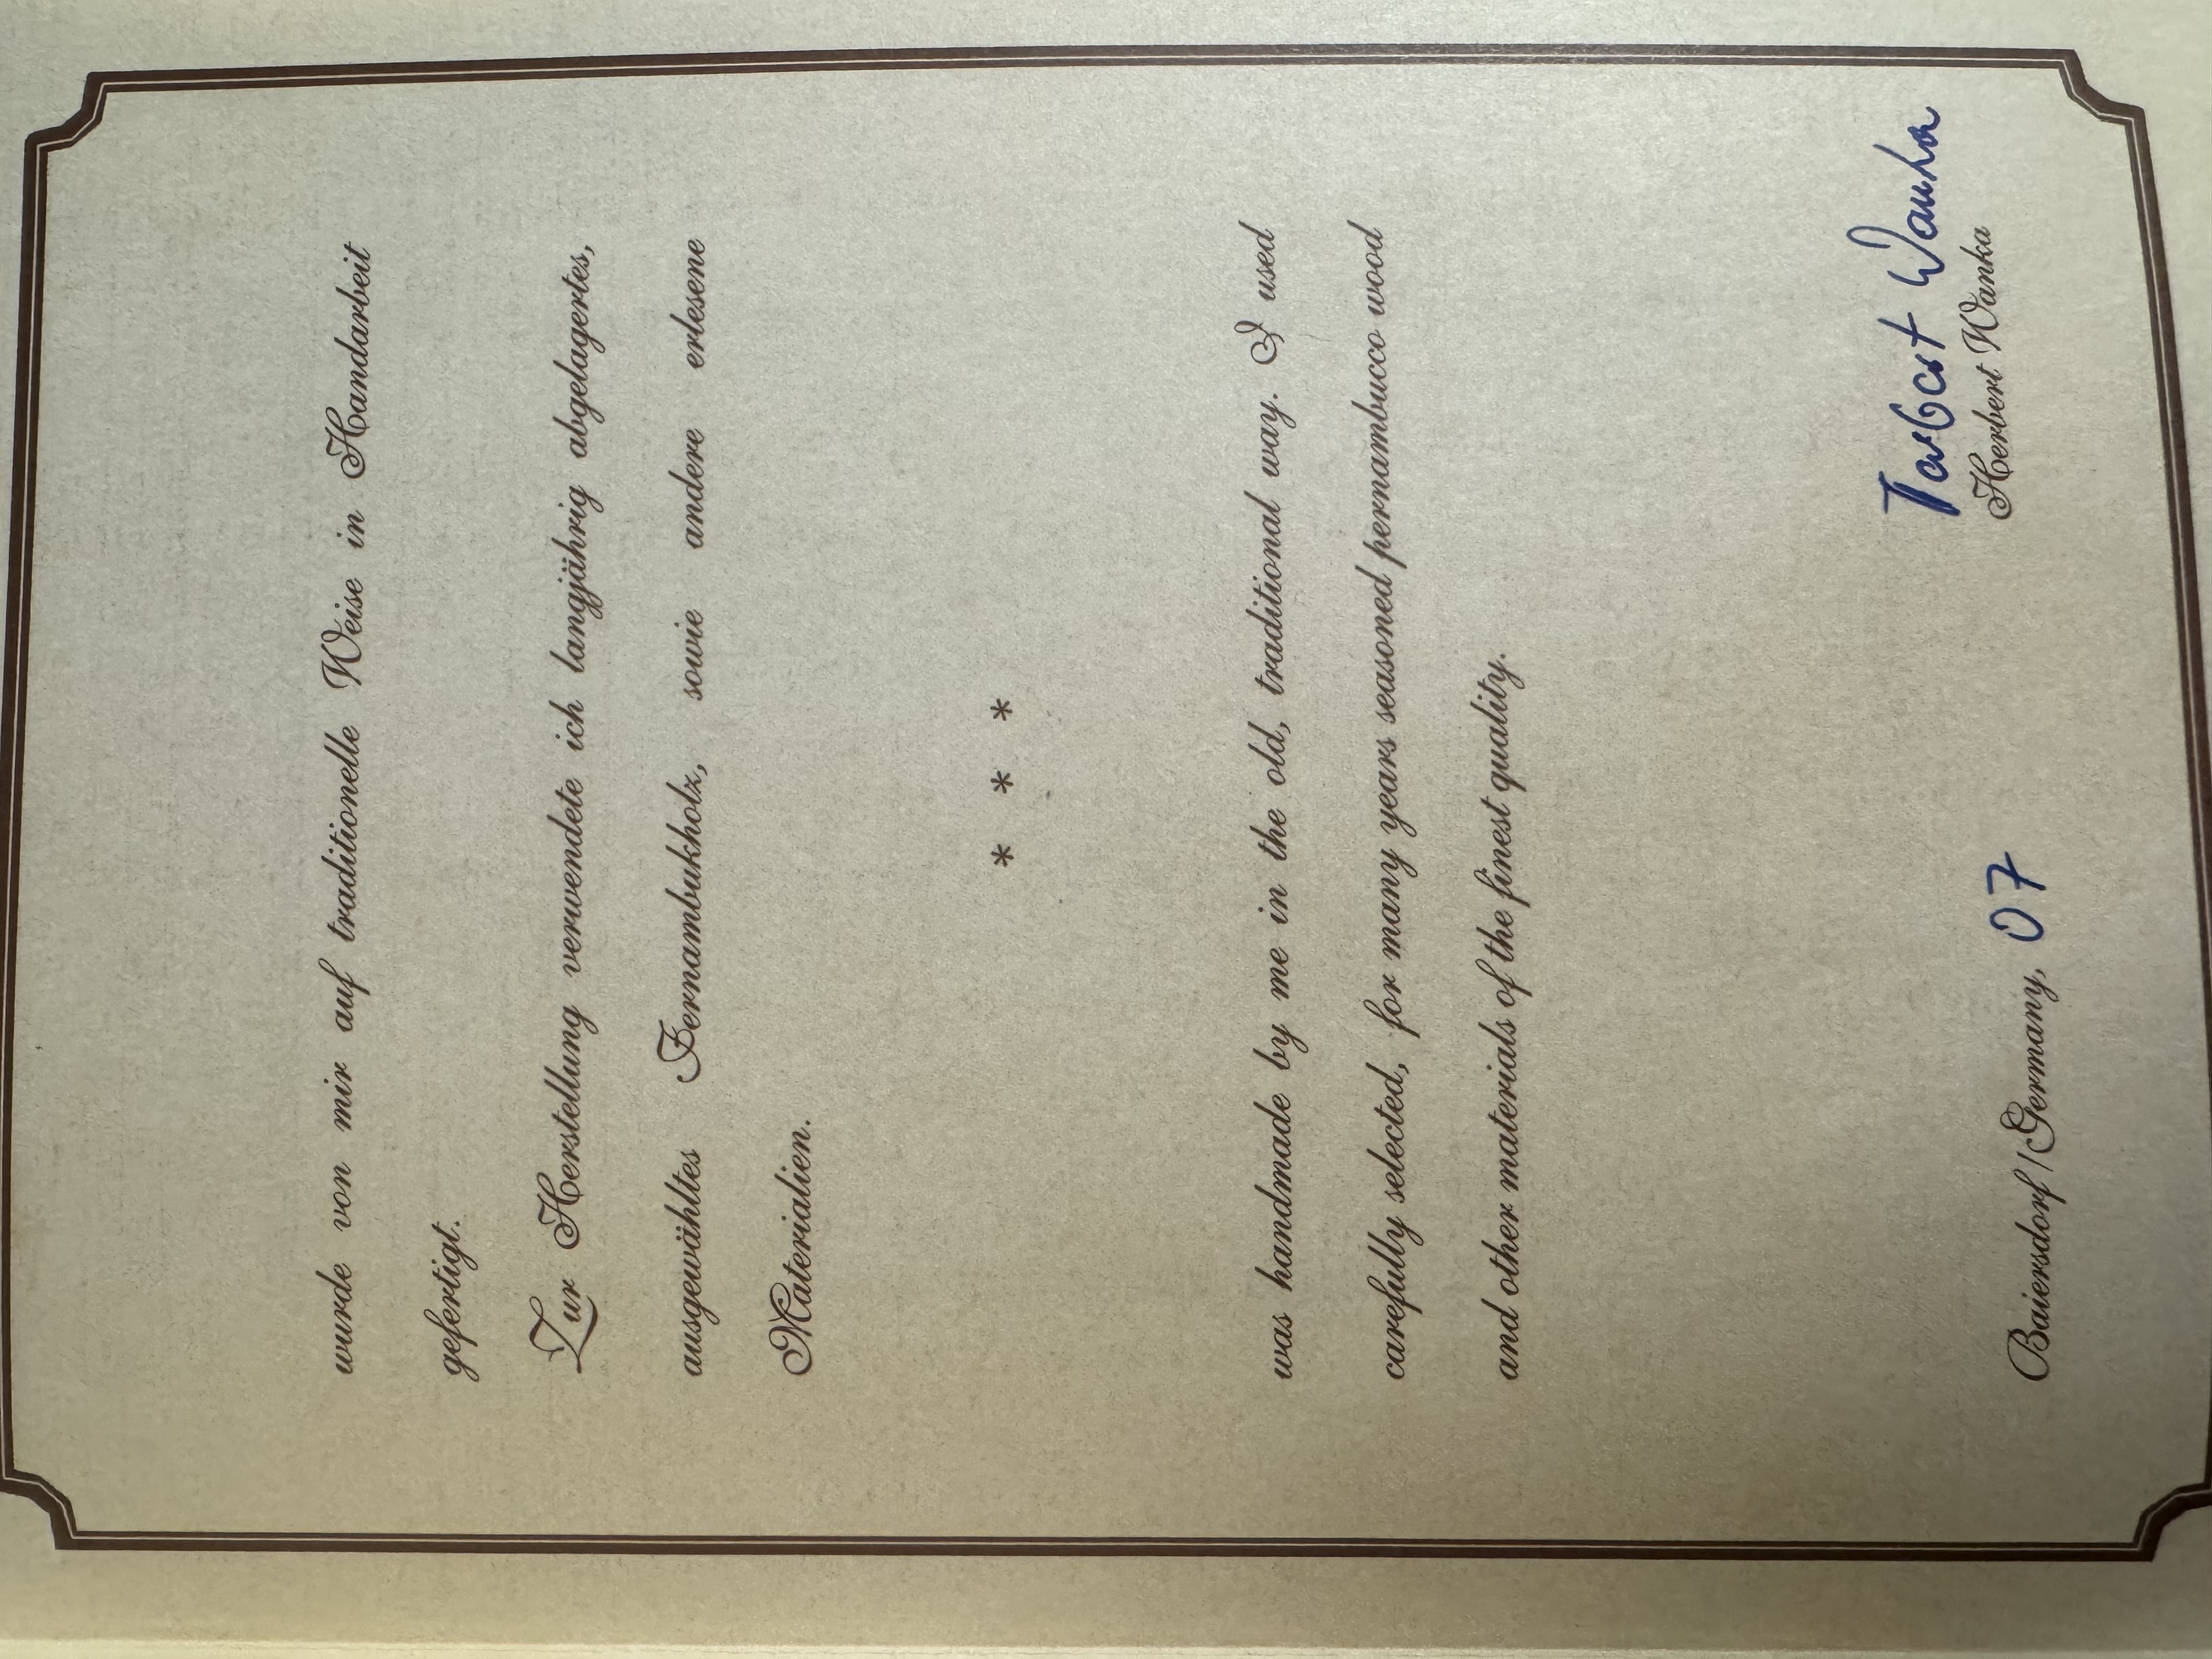 wurde von mir auf traditionelle Weise in Handarbeit
gefertigt.
Zur Herstellung verwendete ich langjährig abgelagertes,
ausgewähltes Fernambukholz, sowie andere erlesene
Materialien.
* * *
was handmade by me in the old, traditional way. I used
carefully selected, for many years seasoned pernambuco wood
and other materials of the finest quality.
Herbert Wanka
Herbert Wanka
Baiersdorf/Germany, 07